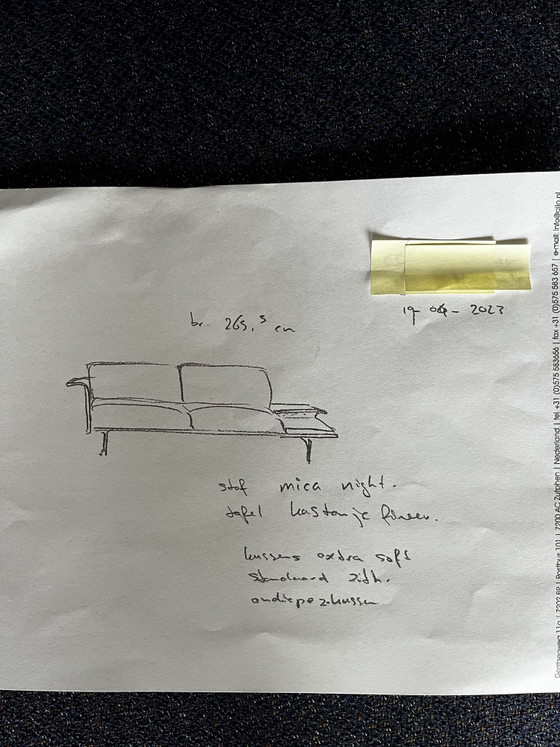 19-04-2023
br. 265,5 cm
stof mica night.
tafel kastanje fineer.
kussens extra soft
standaard zith.
ondiepe z.kussen
7202 BR | Postbus 101 | 7200 AC Zutphen | Nederland | tel. +31 (0)575 583666 | fax +31 (0)575 583 657 | e-mail: info@